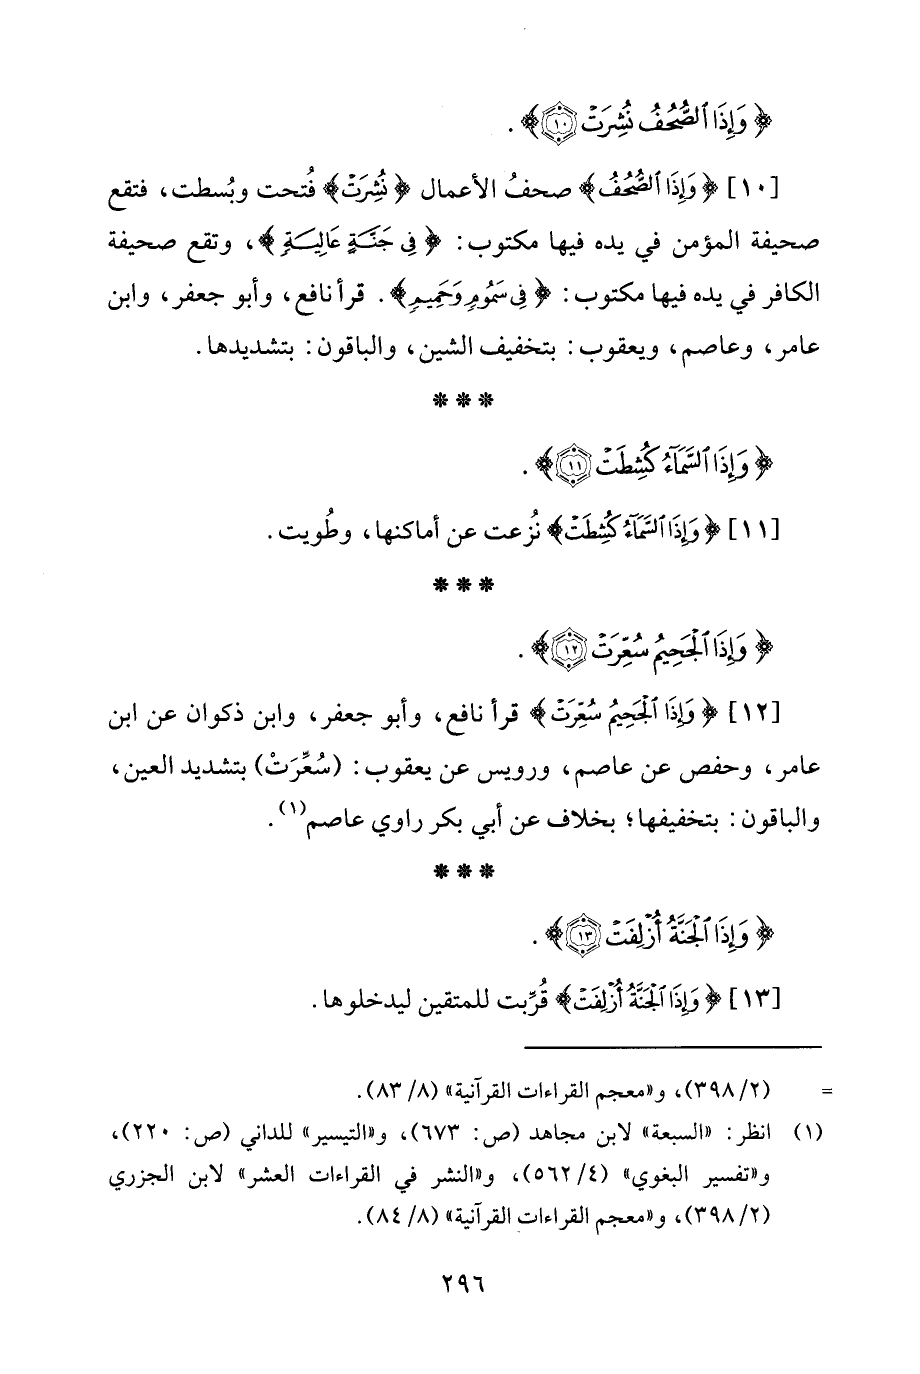 ﴿وَإِذَا ٱلصُّحُفُ نُشِرَتْ ١٠﴾ .
[١٠] ﴿وَإِذَا ٱلصُّحُفُ﴾ صحفُ الأعمال ﴿نُشِرَتْ﴾ فُتحت وبُسطت، فتقع
صحيفة المؤمن في يده فيها مكتوب: ﴿فِي جَنَّةٍ عَالِيَةٍ﴾، وتقع صحيفة
الكافر في يده فيها مكتوب: ﴿فِي سَمُومٍ وَحَمِيمٍ﴾. قرأ نافع، وأبو جعفر، وابن
عامر، وعاصم، ويعقوب: بتخفيف الشين، والباقون: بتشديدها.
* * *
﴿وَإِذَا ٱلسَّمَآءُ كُشِطَتْ ١١﴾ .
[١١] ﴿وَإِذَا ٱلسَّمَآءُ كُشِطَتْ﴾ نُزعت عن أماكنها، وطُويت.
* * *
﴿وَإِذَا ٱلْجَحِيمُ سُعِّرَتْ ١٢﴾ .
[١٢] ﴿وَإِذَا ٱلْجَحِيمُ سُعِّرَتْ﴾ قرأ نافع، وأبو جعفر، وابن ذكوان عن ابن
عامر، وحفص عن عاصم، ورويس عن يعقوب: (سُعِّرَتْ) بتشديد العين،
والباقون: بتخفيفها؛ بخلاف عن أبي بكر راوي عاصم(١).
* * *
﴿وَإِذَا ٱلْجَنَّةُ أُزْلِفَتْ ١٣﴾ .
[١٣] ﴿وَإِذَا ٱلْجَنَّةُ أُزْلِفَتْ﴾ قُرِّبت للمتقين ليدخلوها.
= (٢/ ٣٩٨)، و«معجم القراءات القرآنية» (٨/ ٨٣).
(١) انظر: «السبعة» لابن مجاهد (ص: ٦٧٣)، و«التيسير» للداني (ص: ٢٢٠)،
و«تفسير البغوي» (٤/ ٥٦٢)، و«النشر في القراءات العشر» لابن الجزري
(٢/ ٣٩٨)، و«معجم القراءات القرآنية» (٨/ ٨٤).
٢٩٦